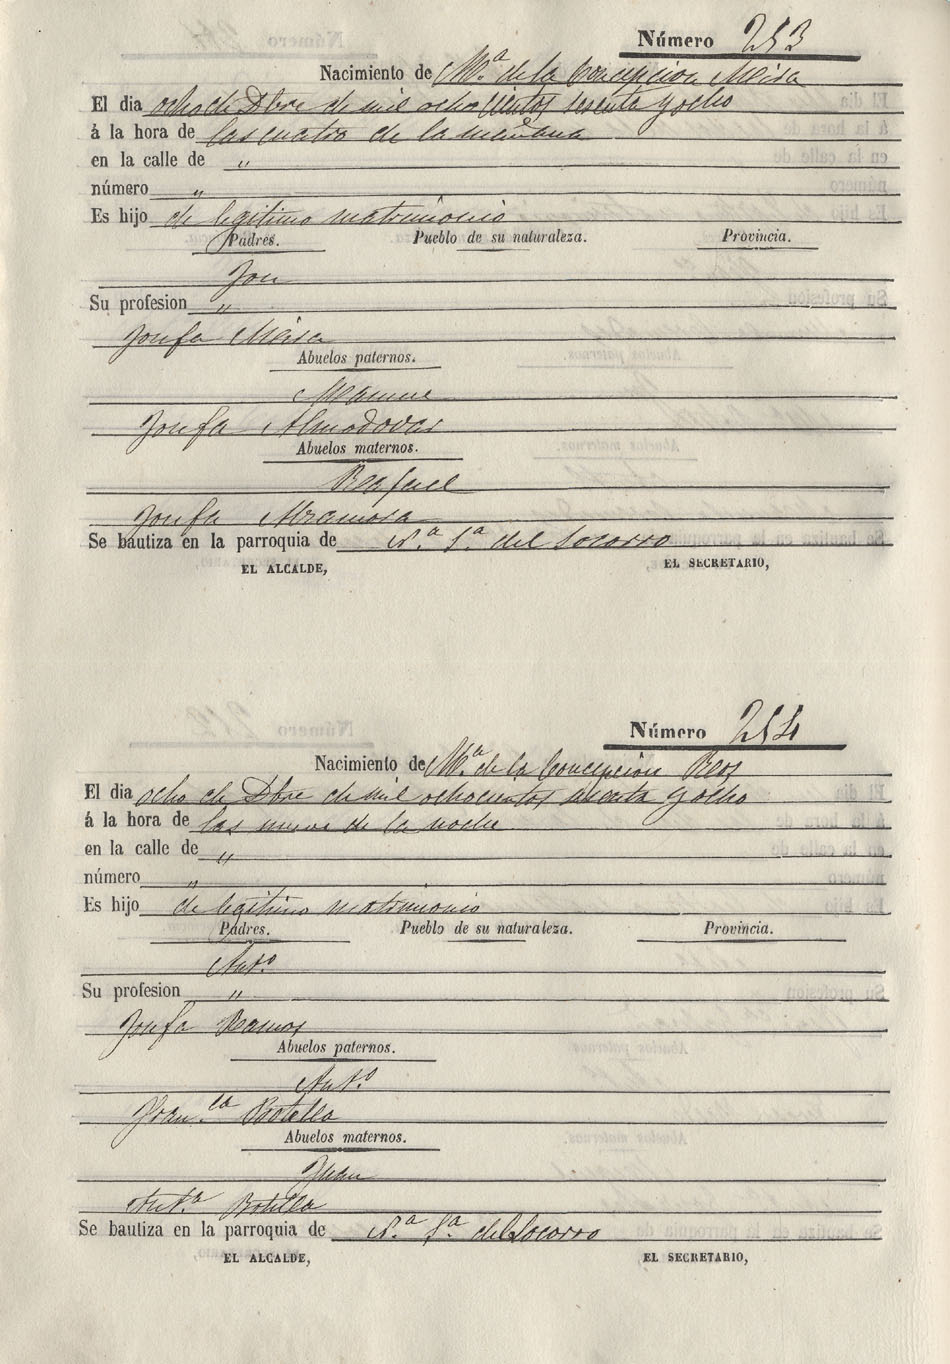 Número 253
Nacimiento de M.ª de la Concepcion Meira
El dia ocho de Dbre de mil ochocientos sesenta y ocho
á la hora de las cuatro de la mañana
en la calle de "
número "
Es hijo de legitimo matrimonio
Padres. Pueblo de su naturaleza. Provincia.
José
Su profesion "
Josefa Meira
Abuelos paternos.
Manuel
Josefa Almodovar
Abuelos maternos.
Rafael
Josefa
Se bautiza en la parroquia de N.ª S.ª del Socorro
EL ALCALDE, EL SECRETARIO,
Número 254
Nacimiento de M.ª de la Concepcion
El dia ocho de Dbre de mil ochocientos sesenta y ocho
á la hora de las nueve de la noche
en la calle de "
número "
Es hijo de legitimo matrimonio
Padres. Pueblo de su naturaleza. Provincia.
Ant.º
Su profesion "
Josefa Ramos
Abuelos paternos.
Ant.º
Fran.ca Botella
Abuelos maternos.
Juan
Ant.ª Botella
Se bautiza en la parroquia de N.ª S.ª del Socorro
EL ALCALDE, EL SECRETARIO,